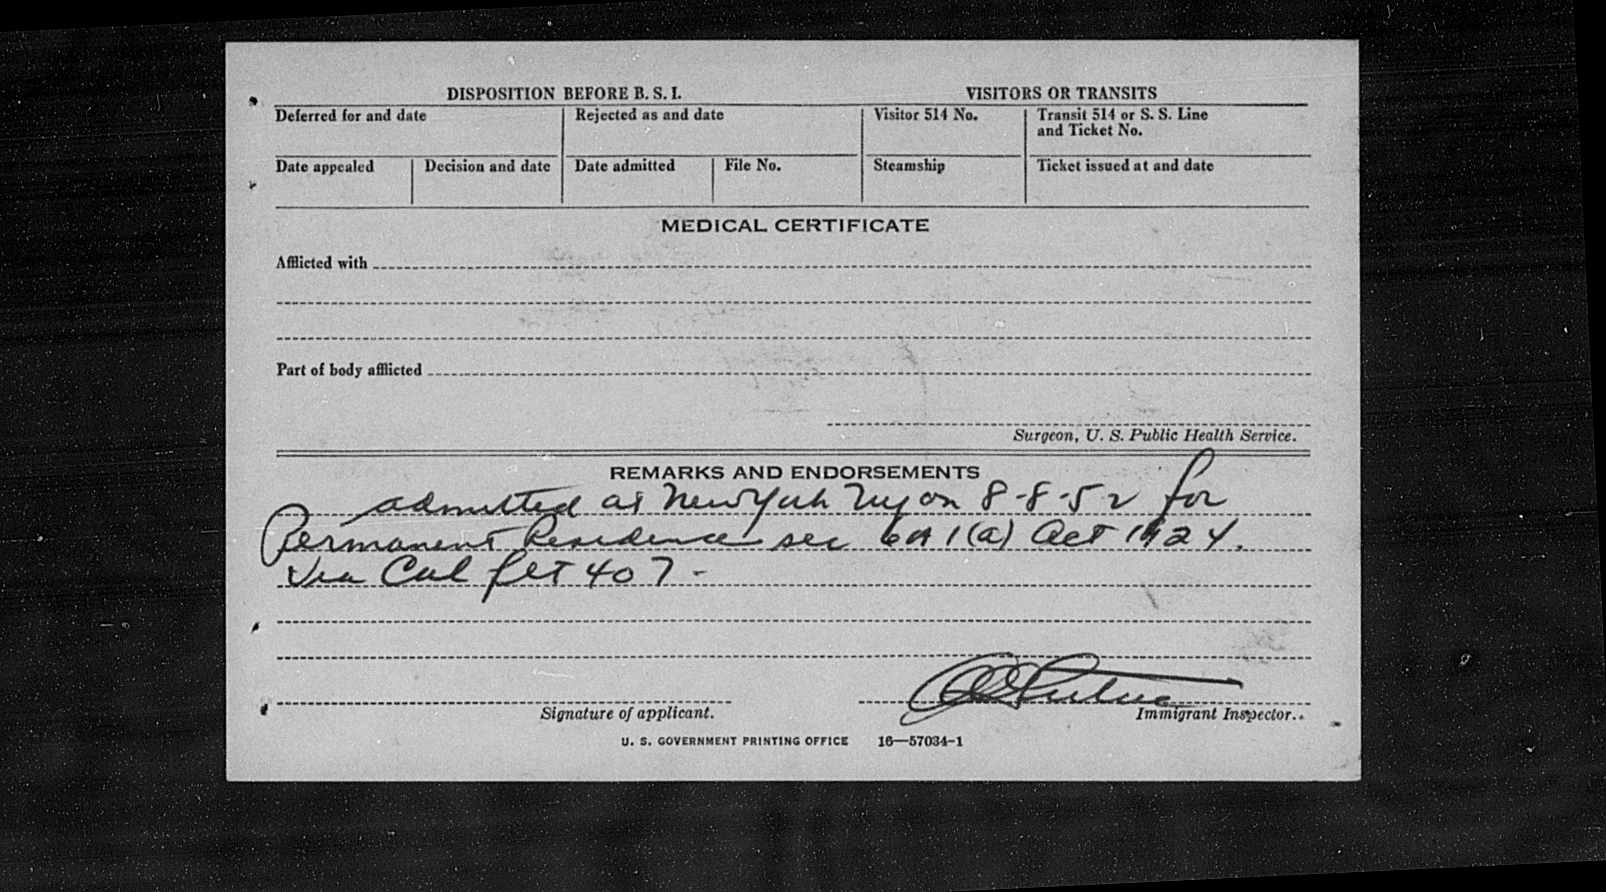 DISPOSITION BEFORE B. S. I.
VISITORS OR TRANSITS
Deferred for and date
Rejected as and date
Visitor 514 No.
Transit 514 or S. S. Line
and Ticket No.
Date appealed
Decision and date
Date admitted
File No.
Steamship
Ticket issued at and date
MEDICAL CERTIFICATE
Afflicted with
Part of body afflicted
Surgeon, U. S. Public Health Service.
REMARKS AND ENDORSEMENTS
admitted at New York Ny on 8-8-52 for
Permanent Residence sec 1(a) Act 1924.
Via Col flt 407-
Signature of applicant.
Immigrant Inspector.
U. S. GOVERNMENT PRINTING OFFICE 16—57034-1